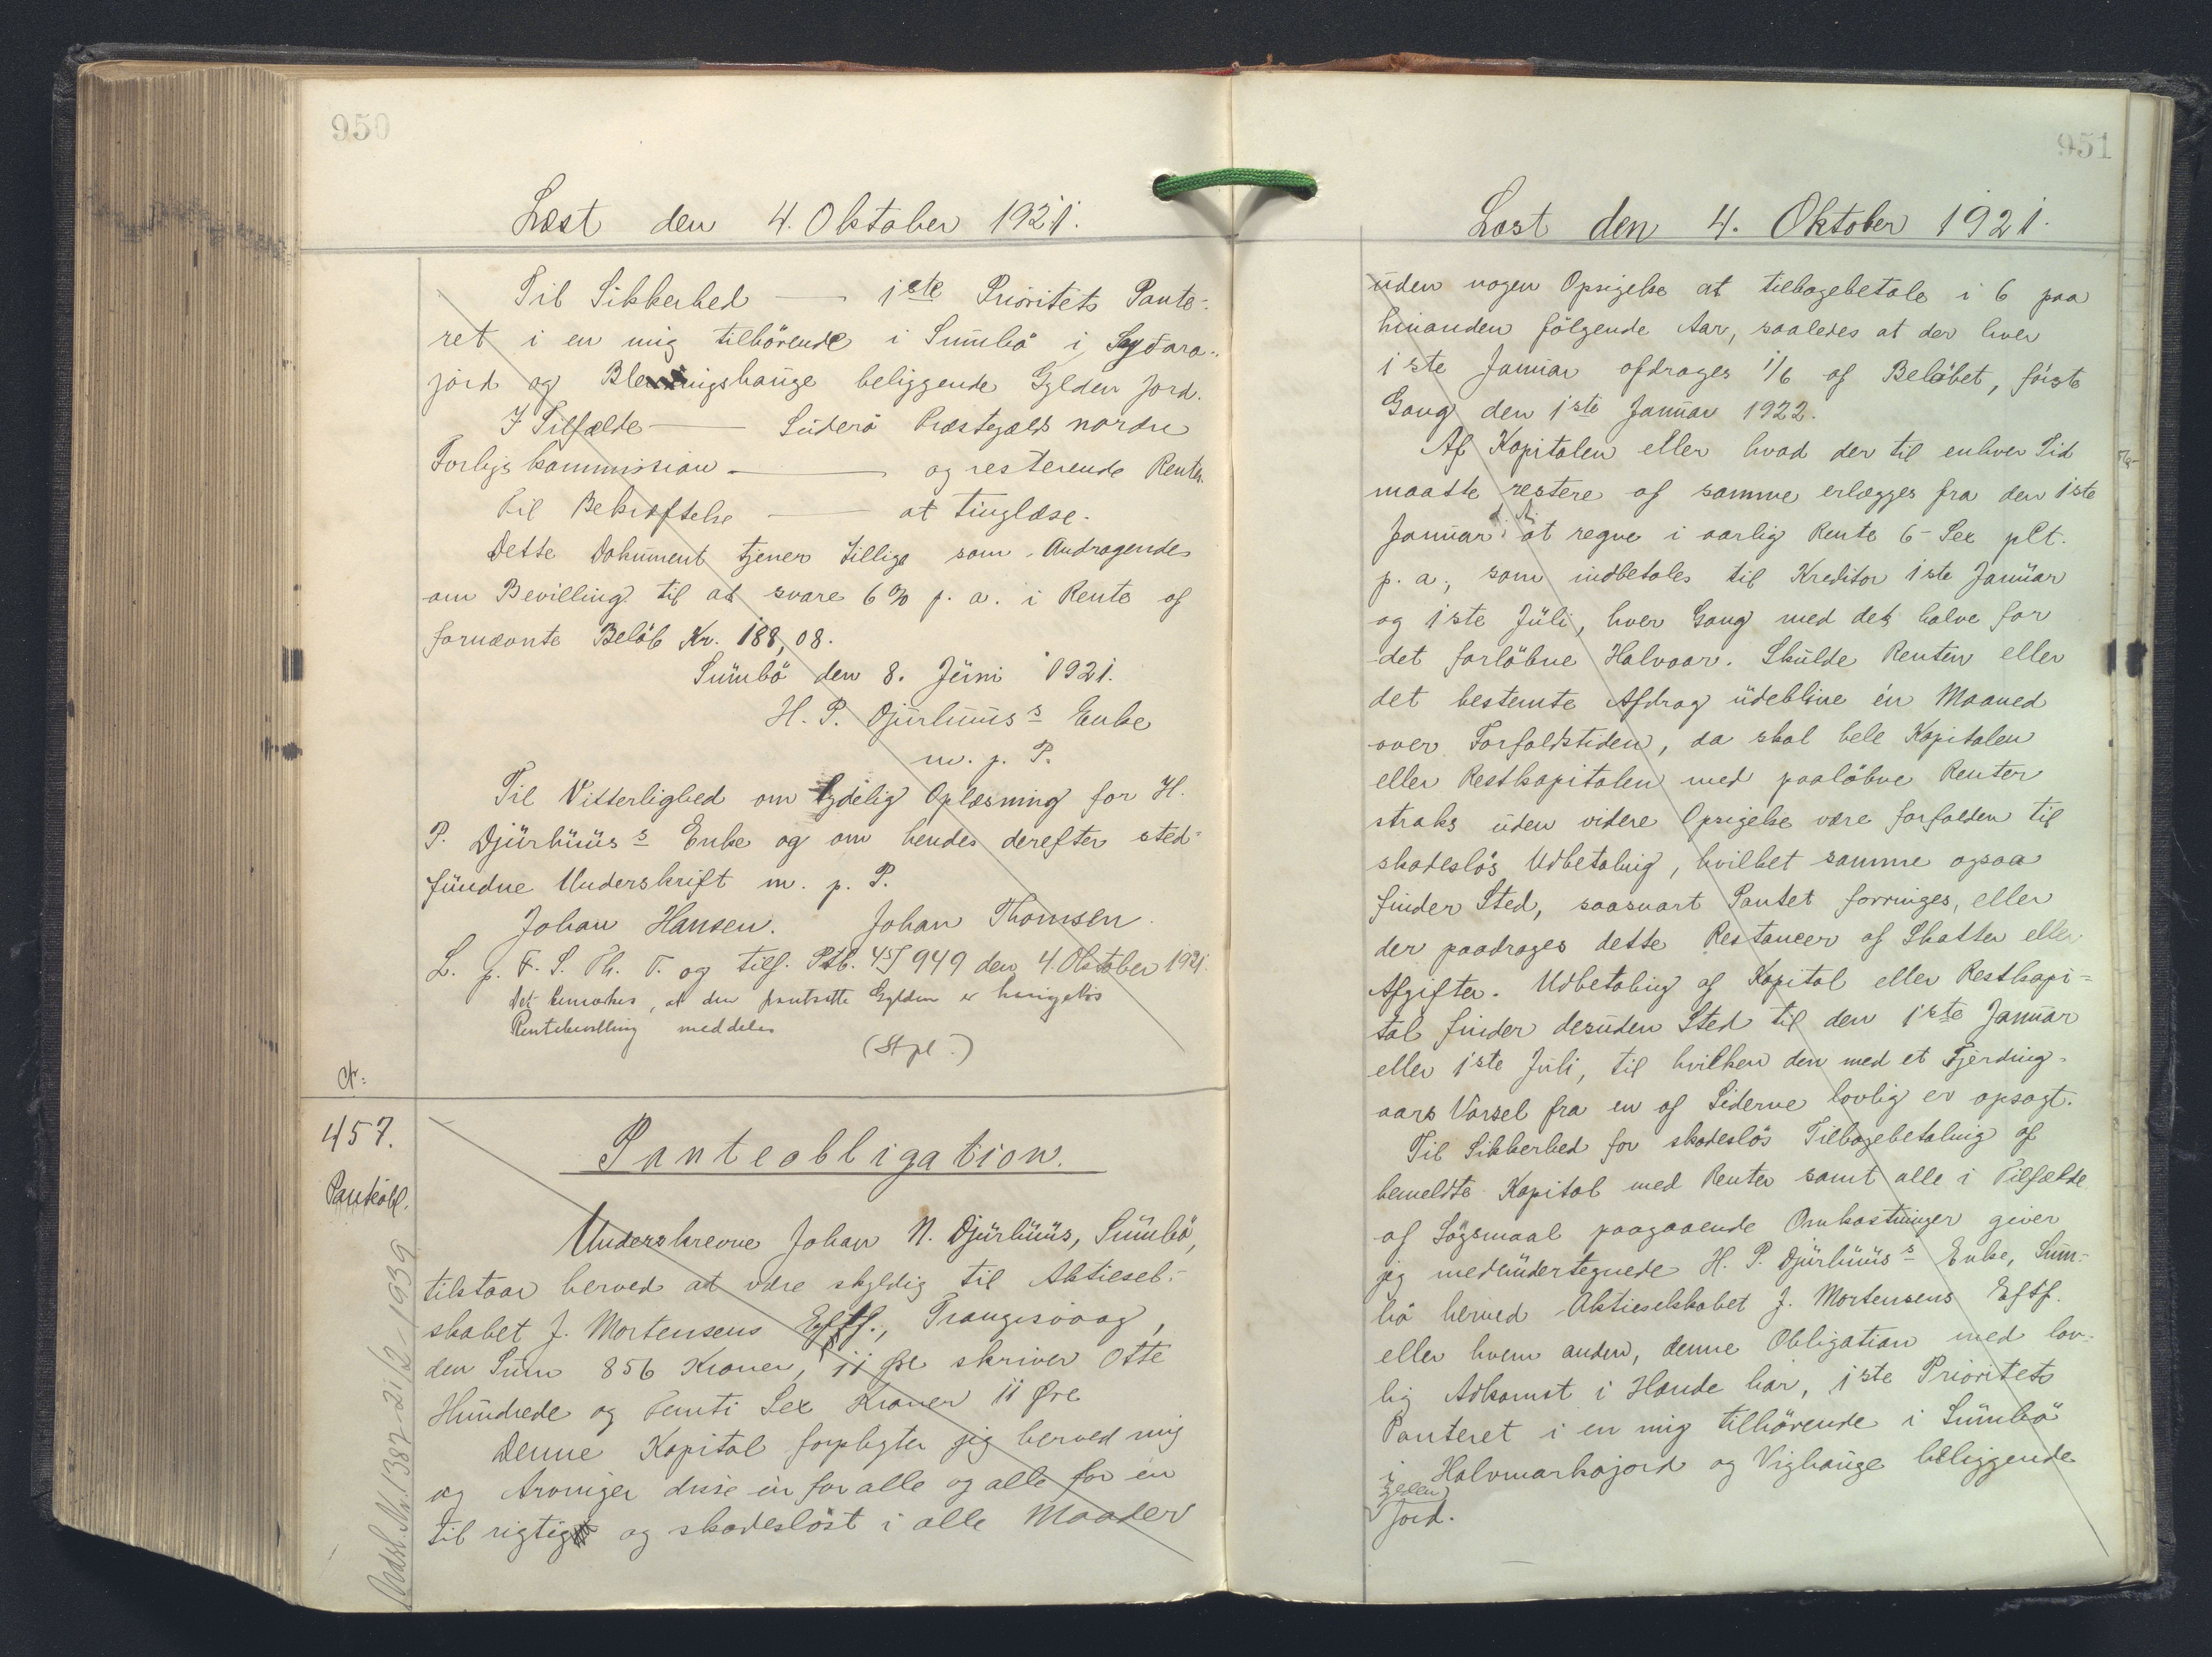 950
Læst den 4. Oktober 1921.
Til Sikkerhed — 1ste Prioritets Pante-
ret i en mig tilhörende i Sumbö i Sydara-
jord og Blenningshauge beliggende Gylden Jord.
I Tilfælde — Suderö Præstegælds nordre
Forligskommission — og resterende Renter.
Til Bekræftelse — at tinglæse.
Dette Dokument tjener tillige som Andragende
om Bevilling til at svare 6% p. a. i Rente af
fornævnte Belöb Kr. 188,08.
Sumbö den 8. Juni 1921.
H. P. Djurhuus s Enke
m. p. P.
Til Vitterlighed om tydelig Oplæsning for H.
P. Djurhuus s Enke og om hendes derefter sted-
fundne Underskrift m. p. P.
Johan Hansen. Johan Thomsen.
L. p. F. S. Th. T. og tilf. Ptb. 45/949 den 4. Oktober 1921.
Det bemærkes, at den pantsatte Gylden er
Rentebevilling meddeles
(Stpl.)
Cfr:
457.
Panteobl.
Panteobligation.
Underskrevne Johan N. Djurhuus, Sumbö,
tilstaar herved at være skyldig til Aktiesel-
skabet J. Mortensens Eftf., Trangisvaag,
den Sum 856 Kroner, 11 Øre skriver Otte
Hundrede og Femti Sex Kroner 11 Øre
Denne Kapital forpligter jeg herved mig
og Arvinger disse én for alle og alle for én
til rigtig og skadeslöst i alle Maader
Udsl. Nr. 1382 21/2 1939
951
Læst den 4. Oktober 1921.
uden nogen Opsigelse at tilbagebetale i 6 paa
hinanden fölgende Aar, saaledes at der hver
1ste Januar afdrages 1/6 af Belöbet, förste
Gang den 1ste Januar 1922.
Af Kapitalen eller hvad der til enhver Tid
maatte restere af samme erlægges fra den 1ste
Januar d. A. at regne i aarlig Rente 6 - Sex pCt.
p. a., som indbetales til Kreditor 1ste Januar
og 1ste Juli, hver Gang med det halve for
det forlöbne Halvaar. Skulde Renten eller
det bestemte Afdrag udeblive én Maaned
over Forfaldstiden, da skal hele Kapitalen
eller Restkapitalen med paalöbne Renter
straks uden videre Opsigelse være forfalden til
skadeslös Udbetaling, hvilket samme ogsaa
finder Sted, saasnart Pantet forringes, eller
der paadrages dette Restancer af Skatter eller
Afgifter. Udbetaling af Kapital eller Restkapi-
tal finder desuden Sted til den 1ste Januar
eller 1ste Juli, til hvilken den med et Fjerding-
aars Varsel fra en af Siderne lovlig er opsagt.
Til Sikkerhed for skadeslös Tilbagebetaling af
bemeldte Kapital med Renter samt alle i Tilfælde
af Sögsmaal paagaaende Omkostninger giver
jeg medundertegnede H. P. Djurhuus s Enke, Sum-
bö herved Aktieselskabet J. Mortensens Eftf.
eller hvem anden, denne Obligation med lov-
lig Adkomst i Hænde har, 1ste Prioritets
Panteret i en mig tilhörende i Sumbö
i Halvmarkajord og Vighauge beliggende
Gylden
Jord.